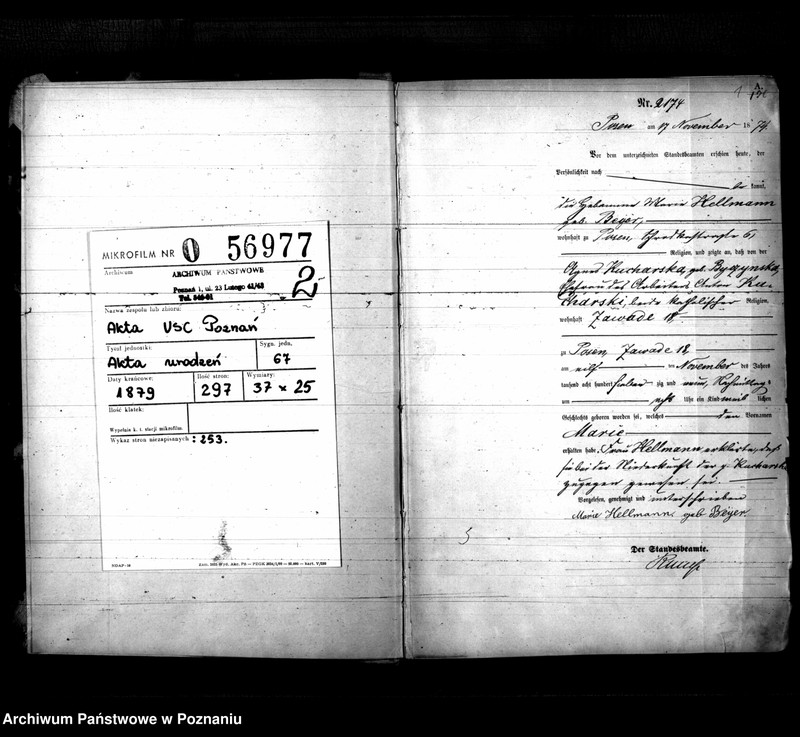 MIKROFILM NR O 56977
Archiwum
ARCHIWUM PAŃSTWOWE
Poznań 1, ul. 23 Lutego 41/43
2
Nazwa zespołu lub zbioru:
Akta USC Poznań
Tytuł jednostki:
Akta urodzeń
Sygn. jedn.
67
Daty krańcowe:
1879
Ilość stron:
297
Wymiary:
37 x 25
Ilość klatek:
Wypełnia k. i. stacji mikrofilm.
Wykaz stron niezapisanych: 253.
Nr. 2174
Posen am 17 November 1879.
Vor dem unterzeichneten Standesbeamten erschien heute, der
Persönlichkeit nach
be kannt,
die Hebamme Marie Hellmann
geb. Beyer,
wohnhaft zu Posen, 6,
Religion, und zeigte an, daß von der
Agnes Kucharska, geb.
Ehefrau des Arbeiters Anton Ku-
charski, beide katholischer Religion,
wohnhaft Zawade 12,
zu Posen, Zawade 12,
am elf ten November des Jahres
tausend acht hundert sieben zig und neun, Nachmittags
um acht Uhr ein Kind weib lichen
Geschlechts geboren worden sei, welches den Vornamen
Marie
erhalten habe. Frau Hellmann erklärte, daß
sie bei der Niederkunft der p. Kucharska
zugegen gewesen sei.
Vorgelesen, genehmigt und unterschrieben
Marie Hellmann geb Beyer
Der Standesbeamte.
Archiwum Państwowe w Poznaniu